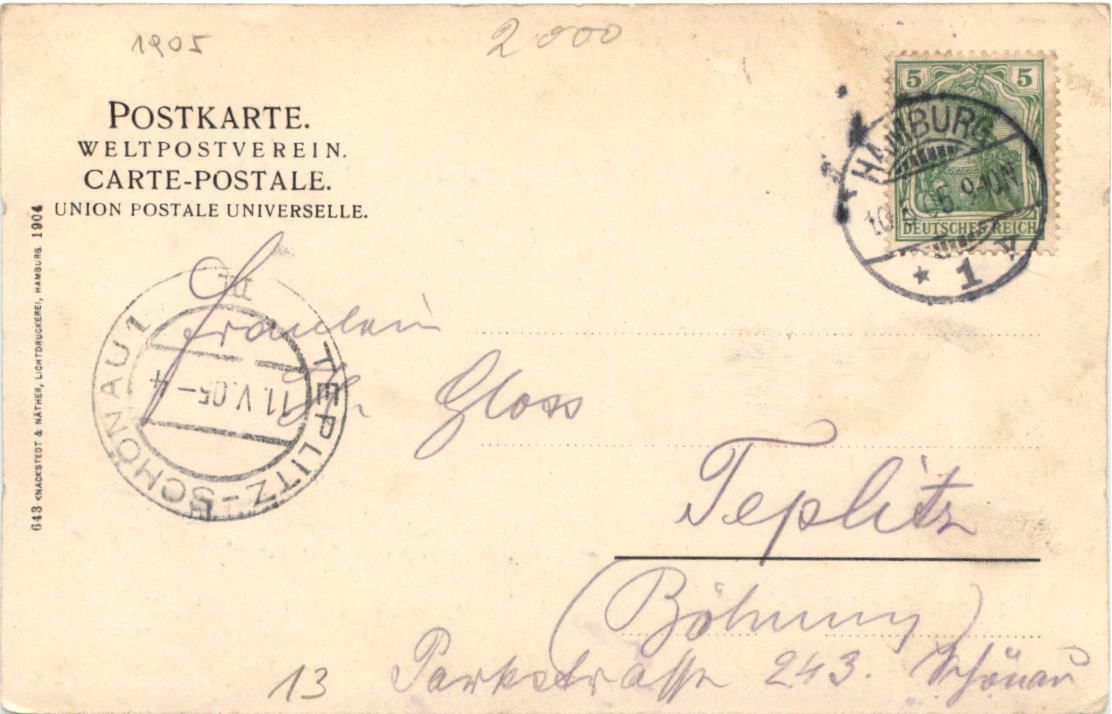 1905
2000
POSTKARTE.
WELTPOSTVEREIN.
CARTE-POSTALE.
UNION POSTALE UNIVERSELLE.
5 5
DEUTSCHES REICH
HAMBURG
10.5.05. 9-10N.
* 1 v
643 KNACKSTEDT & NÄTHER, LICHTDRUCKEREI, HAMBURG. 1904
TEPLITZ-SCHÖNAU 1
11.V.05-4
Fräulein
Gloss
Teplitz
(Böhmen)
13 Parkstrasse 243. Schönau